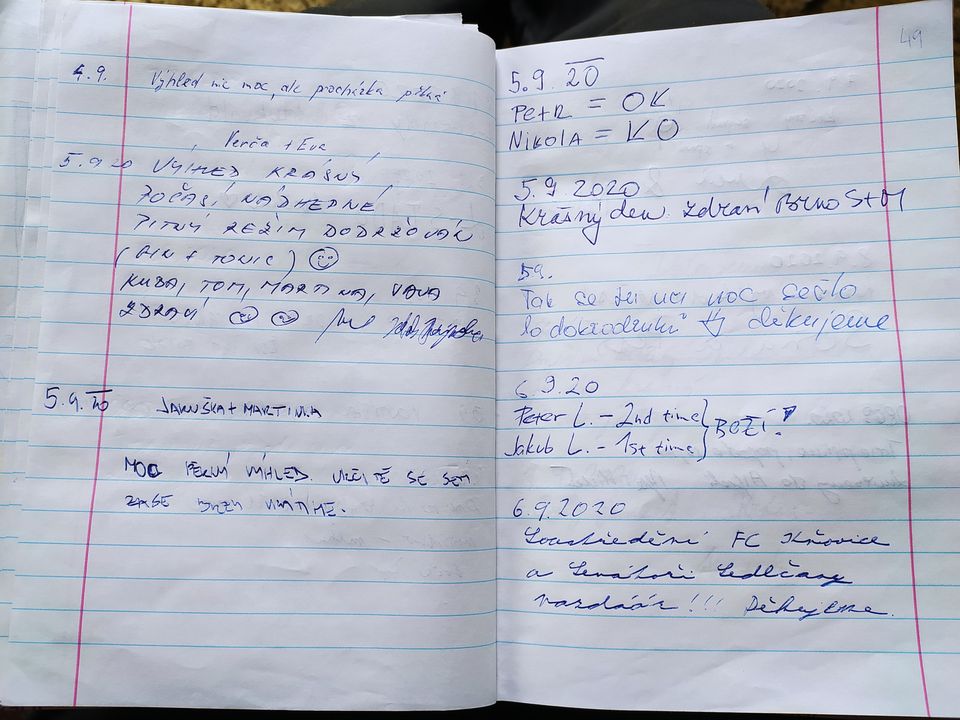 4.9. Výhled nic moc, ale procházka pěkná
Verča + Eva
5.9 20 VÝHLED KRÁSNÝ
POČASÍ NÁDHERNÉ
PITNÝ REŽIM DODRŽOVÁN
(GIN + TONIC) ☺
KUBA, TOM, MARTINA, VAVA
ZDRAVÍ ☺ ☺
5.9.20 JARUŠKA + MARTINKA
MOC PĚKNÝ VÝHLED. URČITĚ SE SEM
ZASE BRZY VRÁTÍME.
49
5.9.20
PETR = OK
NIKOLA = KO
5.9.2020
Krásný den zdraví Brno S+M
5.9.
Tak se na noc sešlo
to dobrodruhů děkujeme
6.9.20
Peter L. - 2nd time
Jakub L. - 1st time } BOŽÍ!
6.9.2020
Soustředění FC Kňovice
a Senátoři Sedlčany
nazdáár!!! Děkujeme.